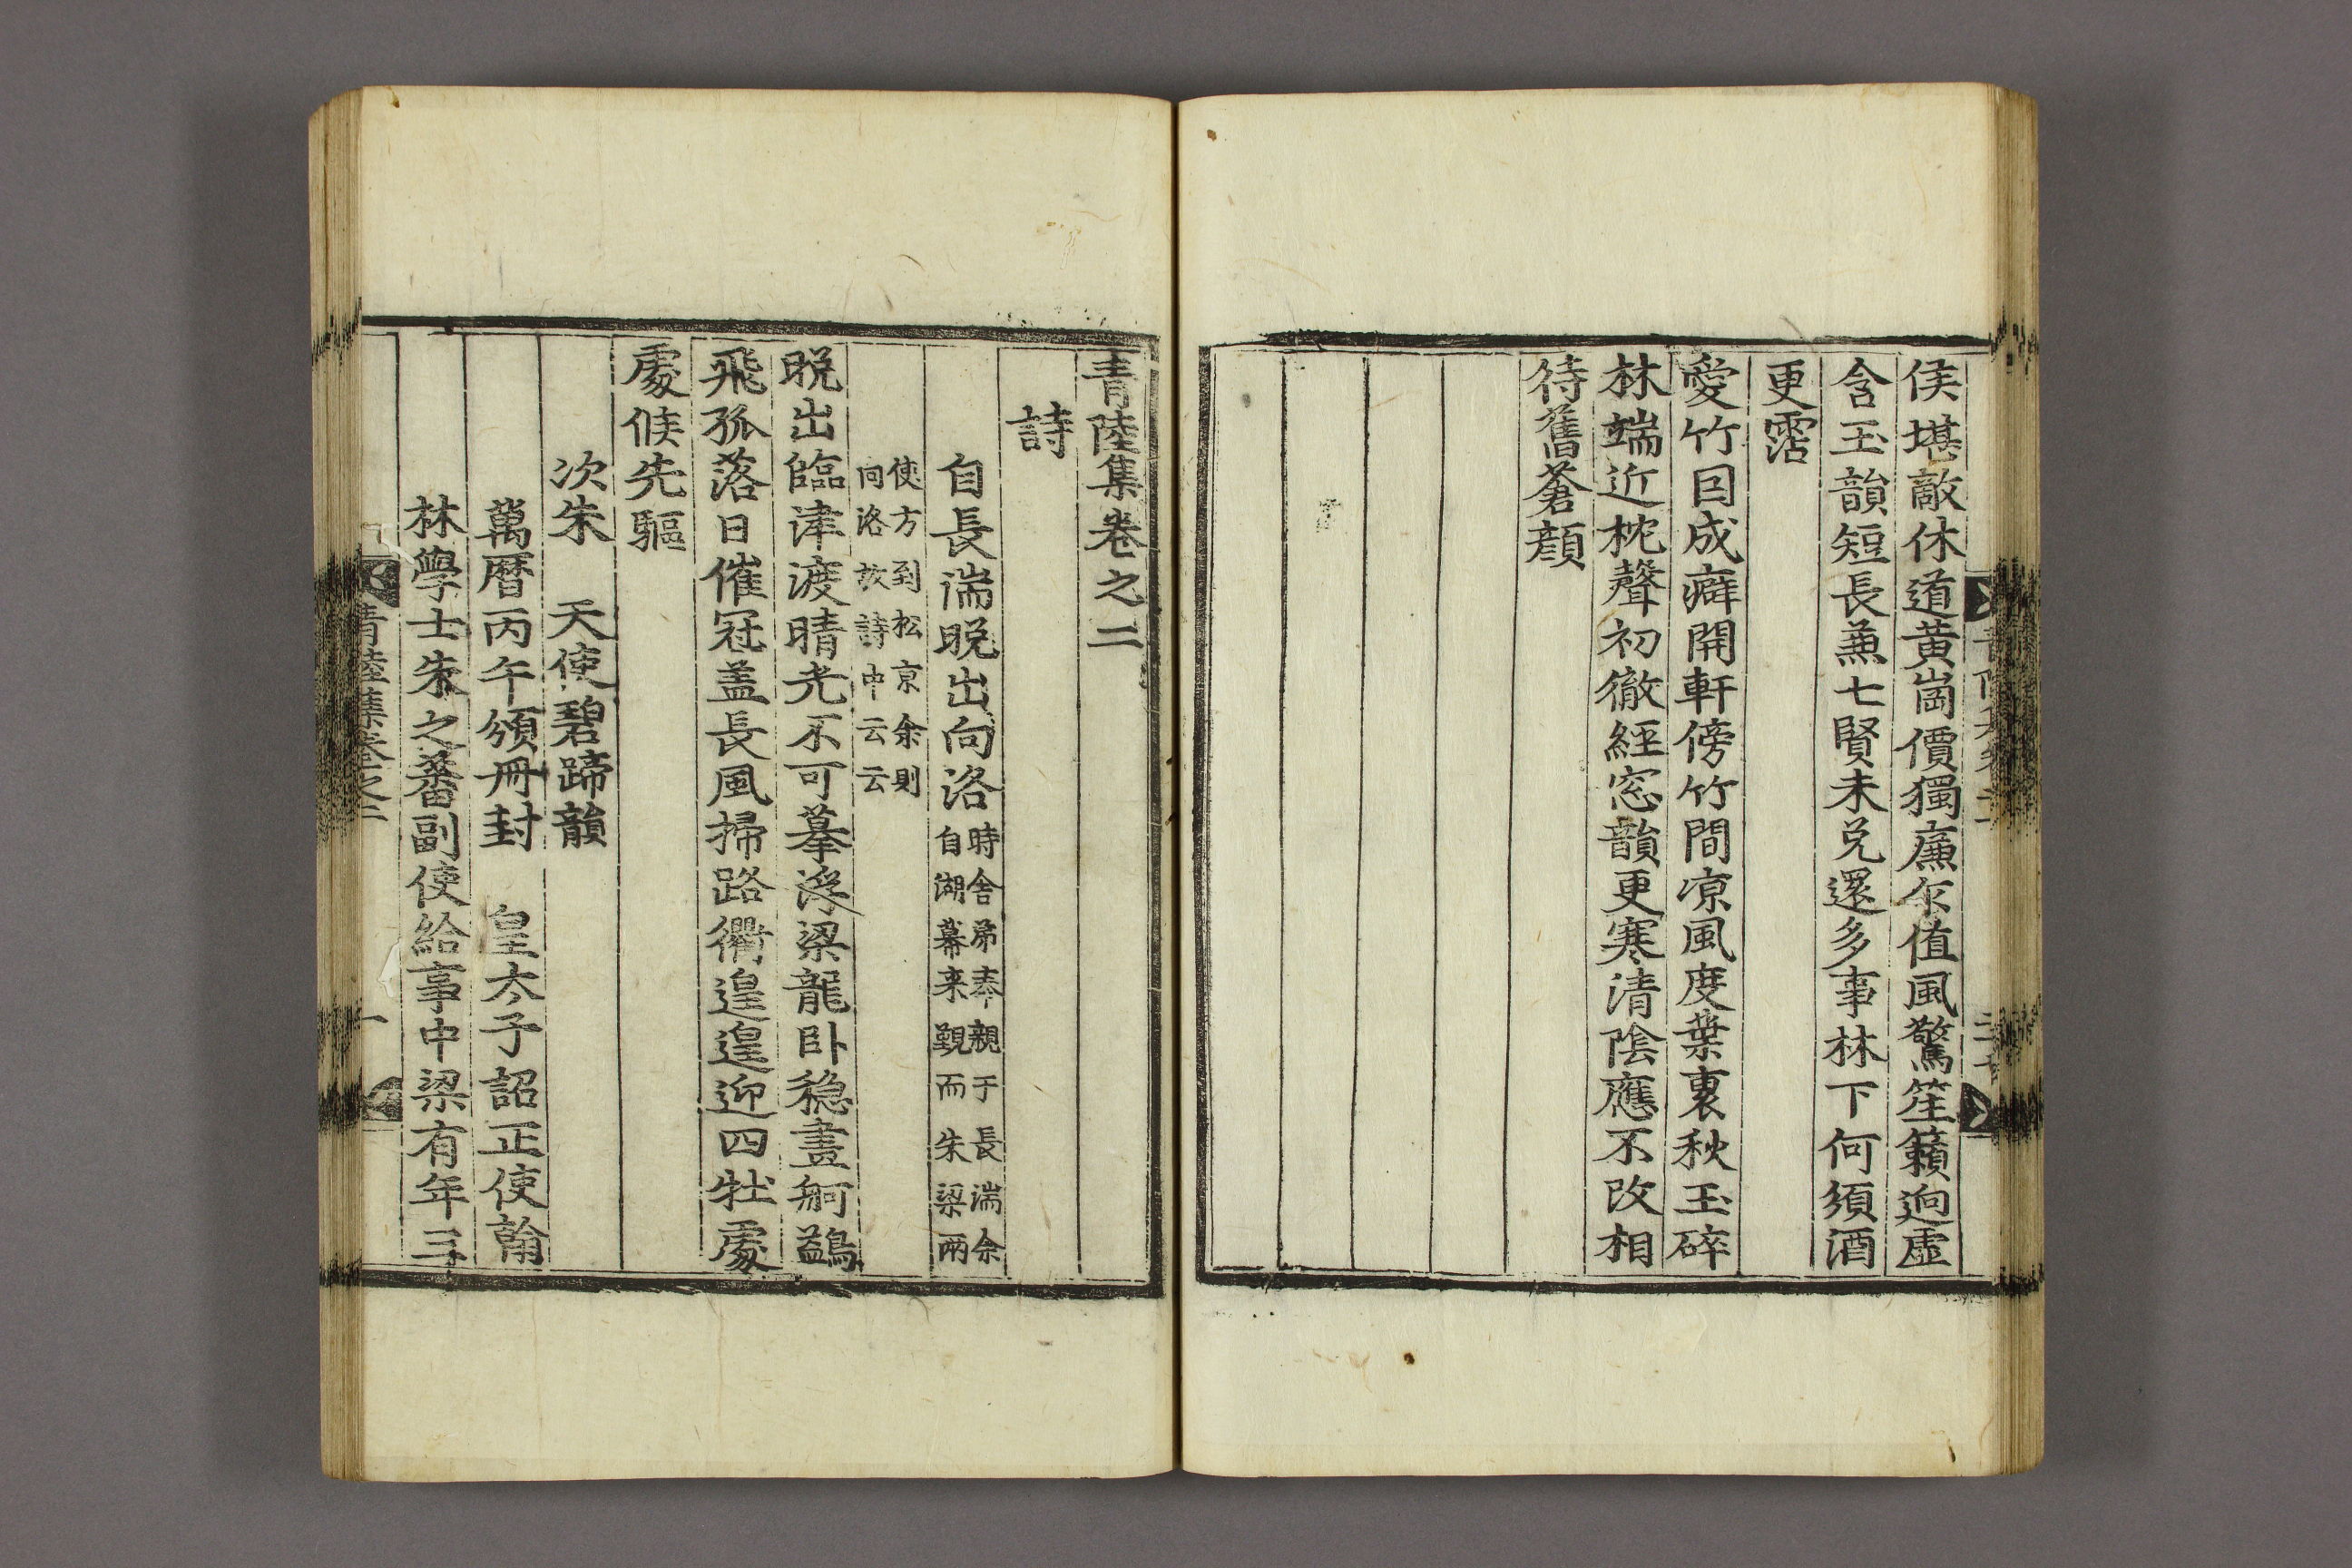 侯堪敵休道黃崗價獨廉乍值風驚笙籟逈虛
含玉韻短長兼七賢未免還多事林下何須酒
更霑
愛竹因成癖開軒傍竹間凉風度葉裏秋玉碎
林端近枕聲初徹經窓韻更寒清陰應不改相
待舊蒼顔
青陸集卷之二
詩
自長湍晩出向洛時舍弟奉親于長湍余
自湖幕来覲而朱梁兩
使方到松京余則
向洛故詩中云云
晩出臨津渡晴光不可摹浮梁龍卧穏畫舸鷁
飛孤落日催冠盖長風掃路衢遑遑迎四牡處
處候先驅
次朱 天使碧蹄韻
萬曆丙午頒冊封 皇太子詔正使翰
林學士朱之蕃副使給事中梁有年三
青陸集卷之二
一